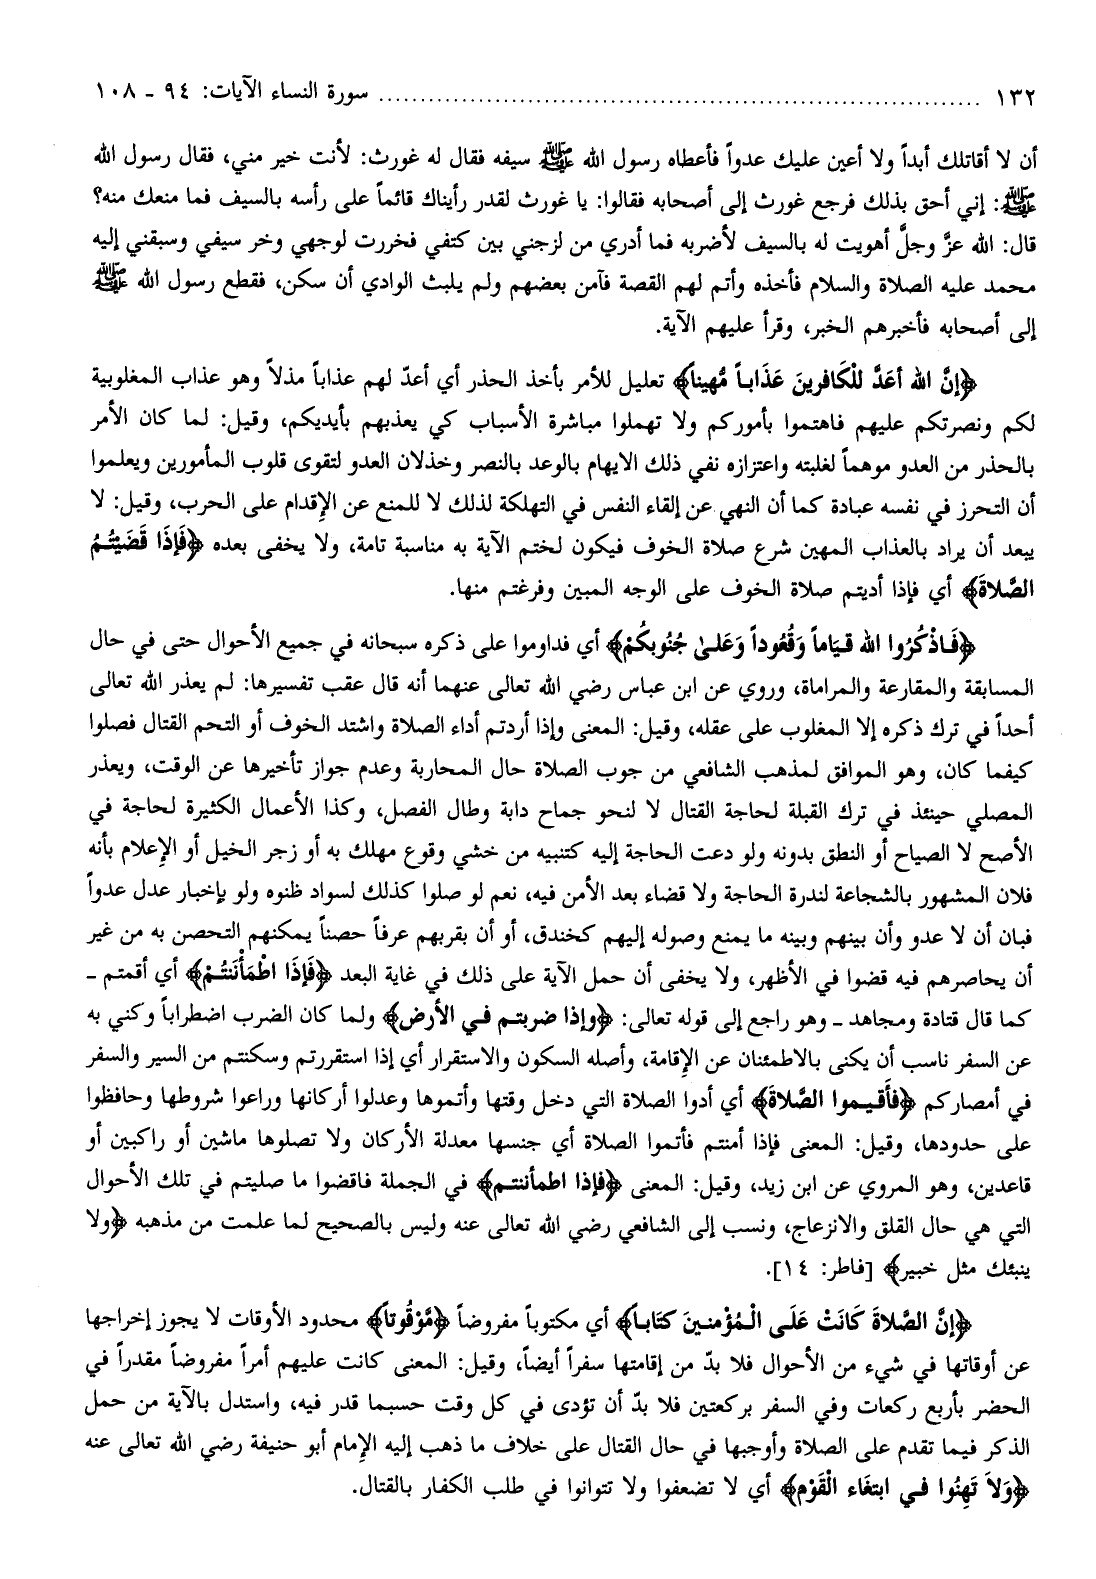 ١٣٢ ............ سورة النساء الآيات: ٩٤ - ١٠٨
أن لا أقاتلك أبداً ولا أعين عليك عدواً فأعطاه رسول الله ﷺ سيفه فقال له غورث: لأنت خير مني، فقال رسول الله
ﷺ: إني أحق بذلك فرجع غورث إلى أصحابه فقالوا: يا غورث لقدر رأيناك قائماً على رأسه بالسيف فما منعك منه؟
قال: الله عزَّ وجلَّ أهويت له بالسيف لأضربه فما أدري من لزجني بين كتفي فخررت لوجهي وخر سيفي وسبقني إليه
محمد عليه الصلاة والسلام فأخذه وأتم لهم القصة فآمن بعضهم ولم يلبث الوادي أن سكن، فقطع رسول الله ﷺ
إلى أصحابه فأخبرهم الخبر، وقرأ عليهم الآية.
﴿إنَّ الله أعَدَّ للْكَافرينَ عَذَاباً مَّهيناً﴾ تعليل للأمر بأخذ الحذر أي أعدّ لهم عذاباً مذلاً وهو عذاب المغلوبية
لكم ونصرتكم عليهم فاهتموا بأموركم ولا تهملوا مباشرة الأسباب كي يعذبهم بأيديكم، وقيل: لما كان الأمر
بالحذر من العدو موهماً لغلبته واعتزازه نفي ذلك الايهام بالوعد بالنصر وخذلان العدو لتقوى قلوب المأمورين ويعلموا
أن التحرز في نفسه عبادة كما أن النهي عن إلقاء النفس في التهلكة لذلك لا للمنع عن الإقدام على الحرب، وقيل: لا
يبعد أن يراد بالعذاب المهين شرع صلاة الخوف فيكون لختم الآية به مناسبة تامة، ولا يخفى بعده ﴿فَإذَا قَضَيتُمُ
الصَّلاةَ﴾ أي فإذا أديتم صلاة الخوف على الوجه المبين وفرغتم منها.
﴿فَاذْكُرُوا الله قيَاماً وَقُعُوداً وَعَلىٰ جُنُوبكُمْ﴾ أي فداوموا على ذكره سبحانه في جميع الأحوال حتى في حال
المسابقة والمقارعة والمراماة، وروي عن ابن عباس رضي الله تعالى عنهما أنه قال عقب تفسيرها: لم يعذر الله تعالى
أحداً في ترك ذكره إلا المغلوب على عقله، وقيل: المعنى وإذا أردتم أداء الصلاة واشتد الخوف أو التحم القتال فصلوا
كيفما كان، وهو الموافق لمذهب الشافعي من جوب الصلاة حال المحاربة وعدم جواز تأخيرها عن الوقت، ويعذر
المصلي حينئذ في ترك القبلة لحاجة القتال لا لنحو جماح دابة وطال الفصل، وكذا الأعمال الكثيرة لحاجة في
الأصح لا الصياح أو النطق بدونه ولو دعت الحاجة إليه كتنبيه من خشي وقوع مهلك به أو زجر الخيل أو الإعلام بأنه
فلان المشهور بالشجاعة لندرة الحاجة ولا قضاء بعد الأمن فيه، نعم لو صلوا كذلك لسواد ظنوه ولو بإخبار عدل عدواً
فبان أن لا عدو وأن بينهم وبينه ما يمنع وصوله إليهم كخندق، أو أن بقربهم عرفاً حصناً يمكنهم التحصن به من غير
أن يحاصرهم فيه قضوا في الأظهر، ولا يخفى أن حمل الآية على ذلك في غاية البعد ﴿فَإذَا اطْمَأْنَنتُمْ﴾ أي أقمتم -
كما قال قتادة ومجاهد - وهو راجع إلى قوله تعالى: ﴿وإذا ضربتم في الأرض﴾ ولما كان الضرب اضطراباً وكني به
عن السفر ناسب أن يكنى بالاطمئنان عن الإقامة، وأصله السكون والاستقرار أي إذا استقررتم وسكنتم من السير والسفر
في أمصاركم ﴿فَأَقيموا الصَّلاةَ﴾ أي أدوا الصلاة التي دخل وقتها وأتموها وعدلوا أركانها وراعوا شروطها وحافظوا
على حدودها، وقيل: المعنى فإذا أمنتم فأتموا الصلاة أي جنسها معدلة الأركان ولا تصلوها ماشين أو راكبين أو
قاعدين، وهو المروي عن ابن زيد، وقيل: المعنى ﴿فإذا اطمأننتم﴾ في الجملة فاقضوا ما صليتم في تلك الأحوال
التي هي حال القلق والانزعاج، ونسب إلى الشافعي رضي الله تعالى عنه وليس بالصحيح لما علمت من مذهبه ﴿ولا
ينبئك مثل خبير﴾ [فاطر: ١٤].
﴿إنَّ الصَّلاةَ كَانَتْ عَلَى الْمُؤْمنينَ كتَاباً﴾ أي مكتوباً مفروضاً ﴿مَّوْقُوتاً﴾ محدود الأوقات لا يجوز إخراجها
عن أوقاتها في شيء من الأحوال فلا بدّ من إقامتها سفراً أيضاً، وقيل: المعنى كانت عليهم أمراً مفروضاً مقدراً في
الحضر بأربع ركعات وفي السفر بركعتين فلا بدّ أن تؤدى في كل وقت حسبما قدر فيه، واستدل بالآية من حمل
الذكر فيما تقدم على الصلاة وأوجبها في حال القتال على خلاف ما ذهب إليه الإمام أبو حنيفة رضي الله تعالى عنه
﴿وَلاَ تَهِنُوا في ابتغَاء الْقَوْم﴾ أي لا تضعفوا ولا تتوانوا في طلب الكفار بالقتال.